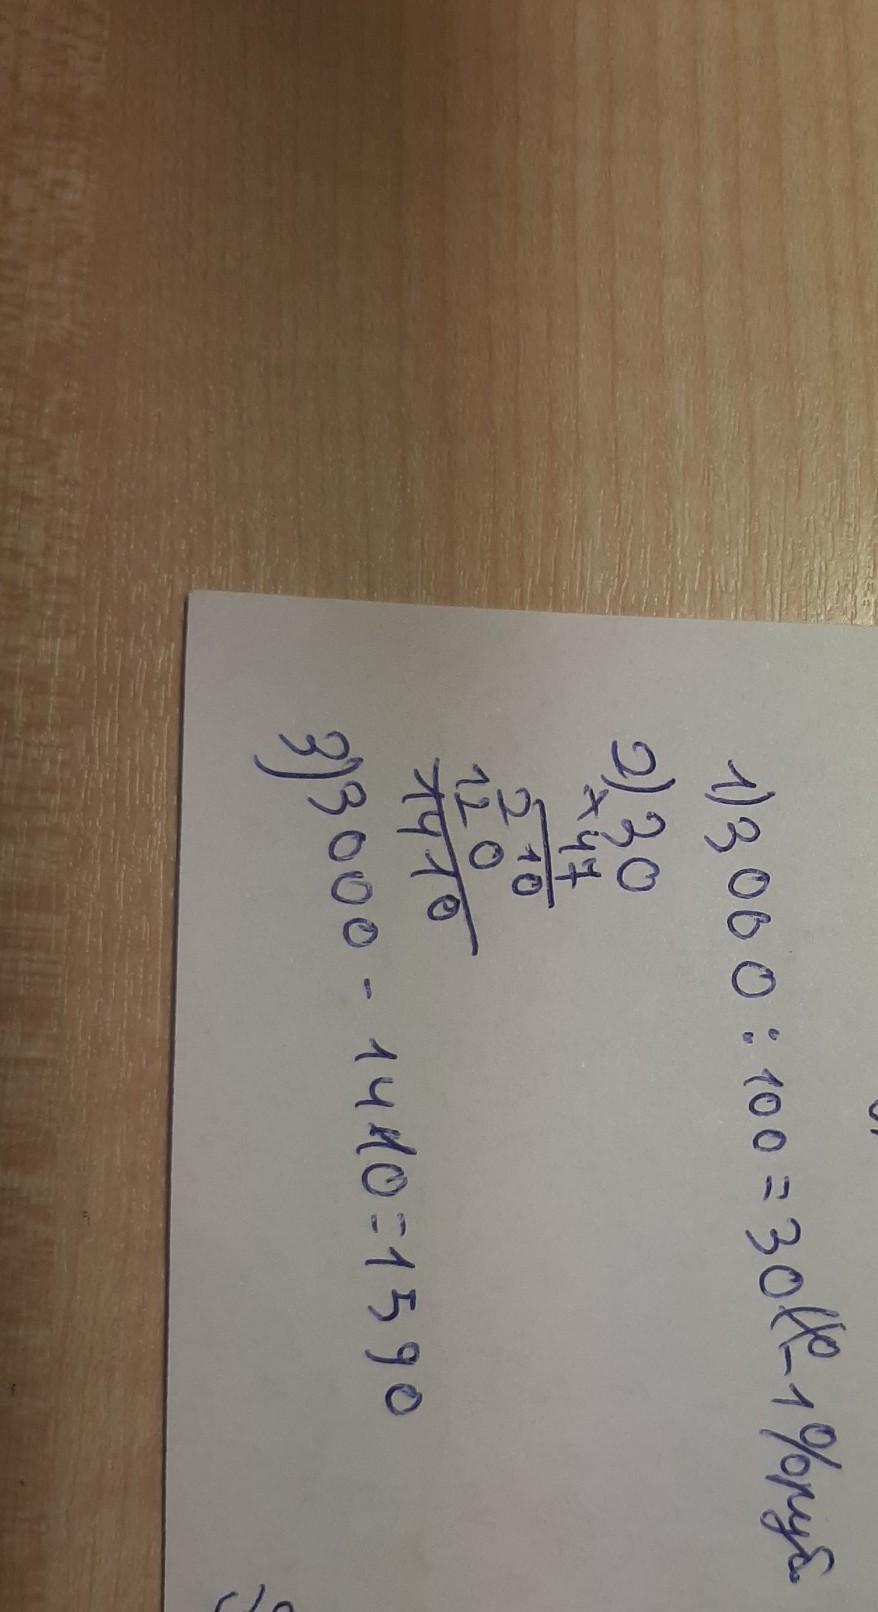 1) 3000 : 100 = 30 - 1% руб.
2) 30
× 47
210
120
1410
3) 3000 - 1410 = 1590